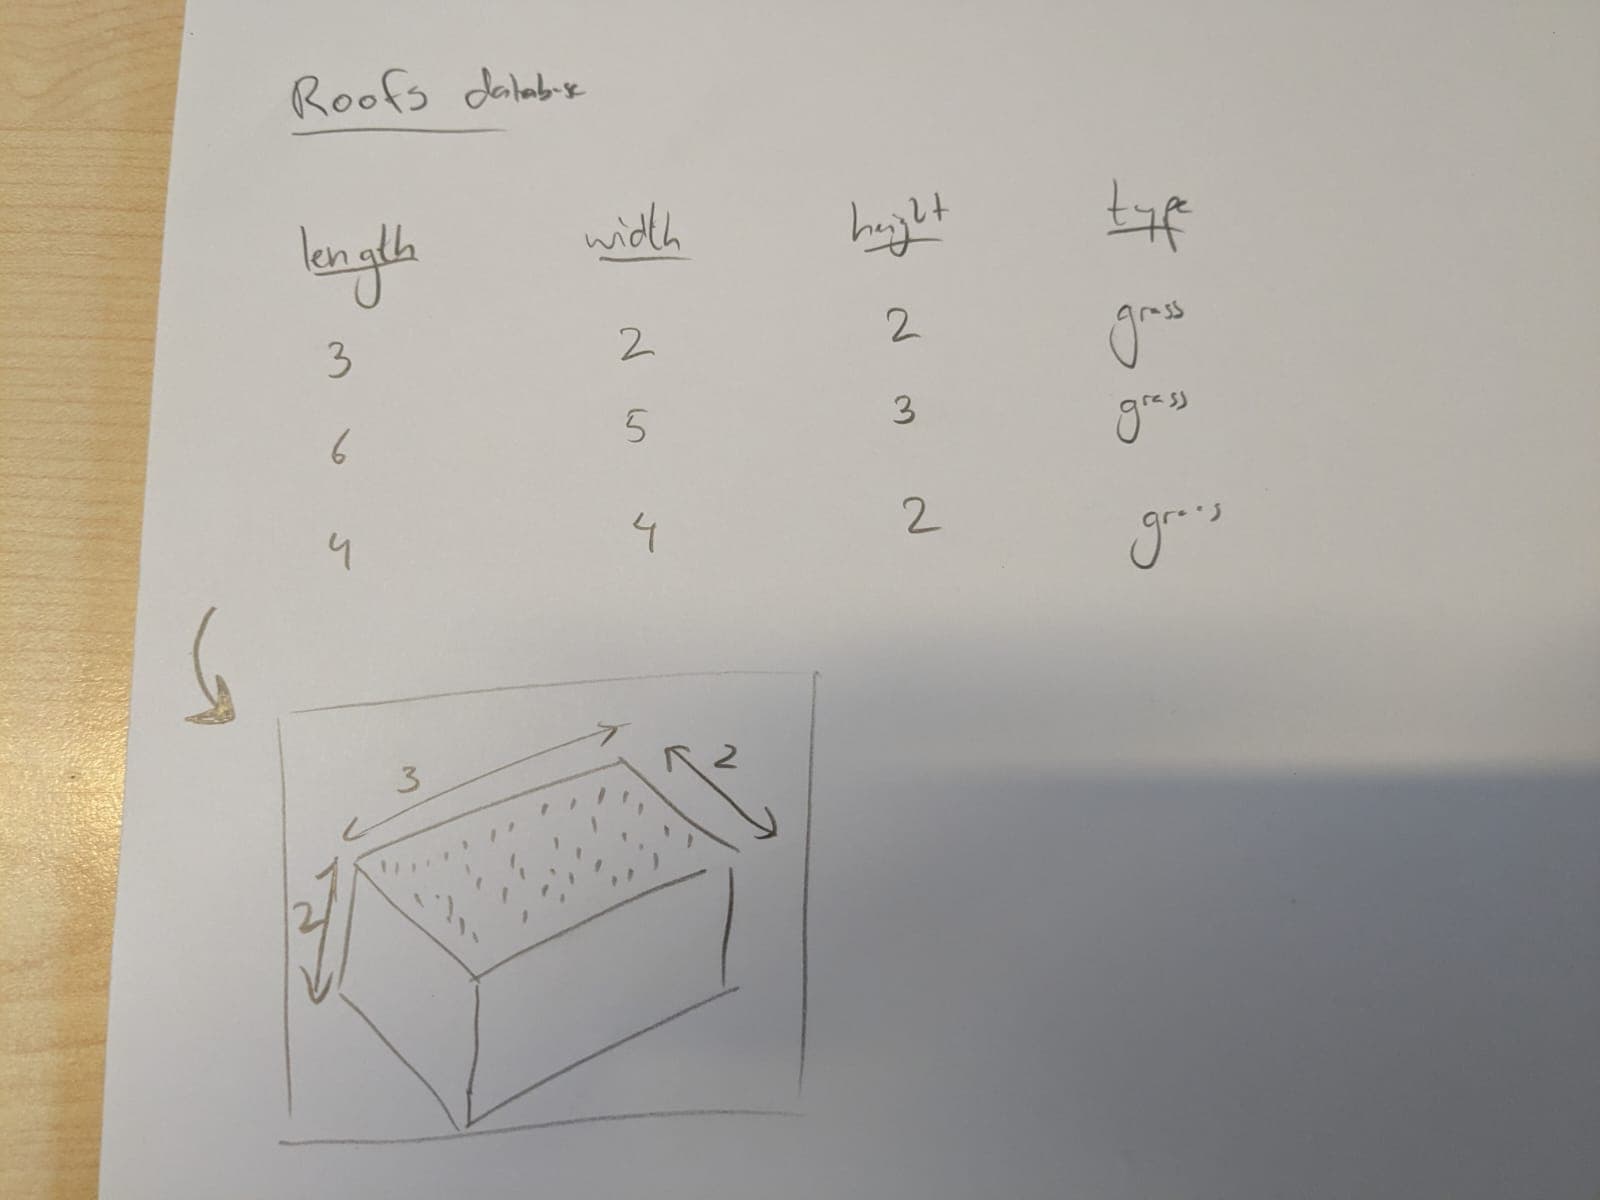 Roofs database
length width height type
3 2 2 grass
6 5 3 grass
4 4 2 grass
3 2
2